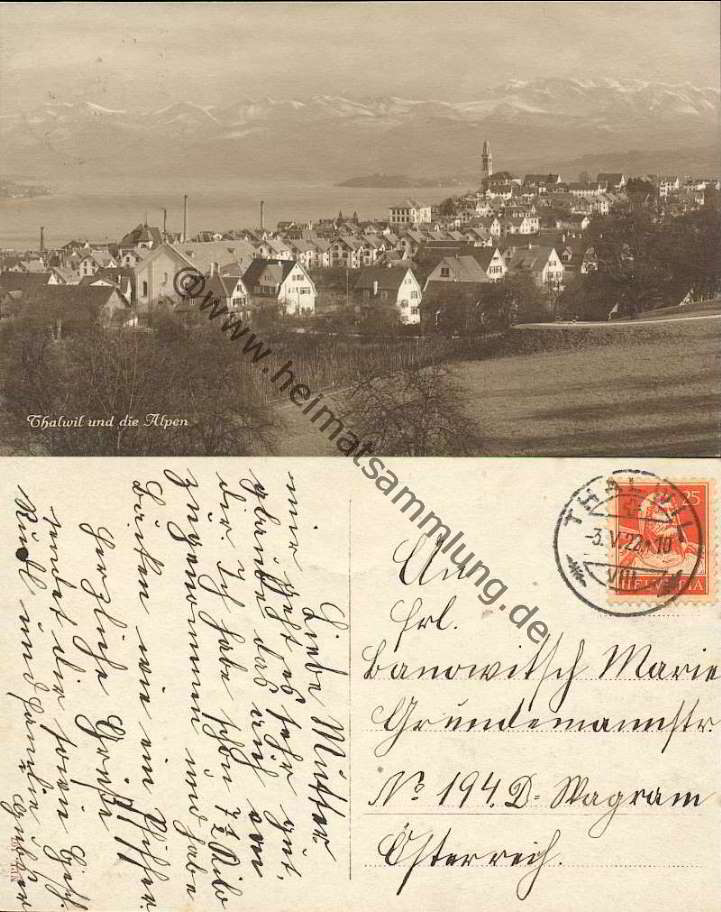 Thalwil und die Alpen
@www.heimatsammlung.de
THALWIL
-3.V.22. 10
VIII
25
HELVETIA
An
Frl.
Banowitsch Marie
Grundemannstr.
No 194. D-Wagram
Österreich.
Liebe Mutter
mir geht es sehr gut,
glaube das auch von
dir. Ich habe schon 7½ Kilo
zugenommen und habe
Backen wie ein Pfiffer
Herzliche Grüße
sendet dir sowie
Rudl und Familie